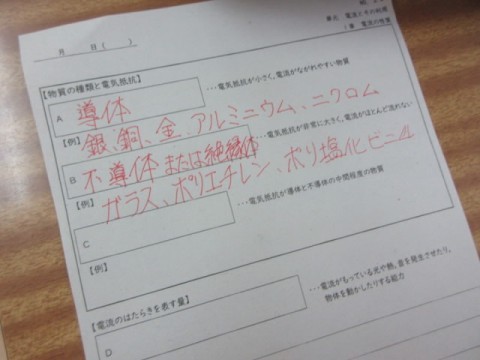 月 日( )
単元 電流とその利用
1章 電流の性質
【物質の種類と電気抵抗】
A 導体 ・・・電気抵抗が小さく，電流がながれやすい物質
【例】 銀、銅、金、アルミニウム、ニクロム
B 不導体または絶縁体 ・・・電気抵抗が非常に大きく，電流がほとんど流れない
【例】 ガラス、ポリエチレン、ポリ塩化ビニル
C ・・・電気抵抗が導体と不導体の中間程度の物質
【例】
【電流のはたらきを表す量】
D ・・・電流がもっている光や熱，音を発生させたり，
物体を動かしたりする能力